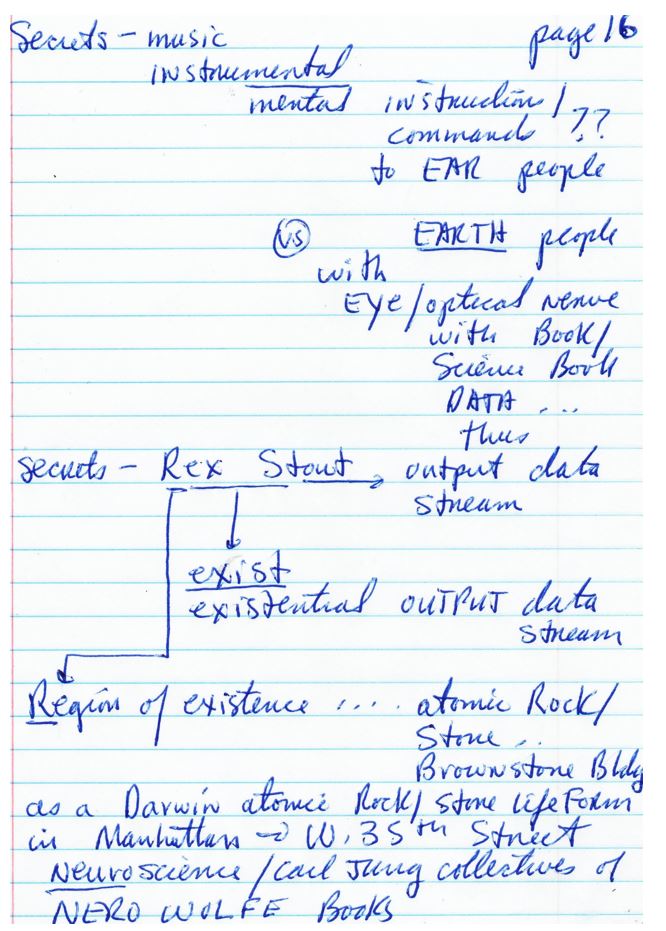 Secrets - music page 16
instrumental
mental instruction/
commands ??
to EAR people
VS EARTH people
with
Eye/optical nerve
with Book/
Science Book
DATA ...
thus
Secrets - Rex Stout → output data
stream
exist
existential OUTPUT data
stream
Region of existence .... atomic Rock/
Stone ..
Brownstone Bldg
as a Darwin atomic Rock/stone lifeForm
in Manhattan → W. 35th Street
Neuroscience/Carl Jung collectives of
NERO WOLFE Books